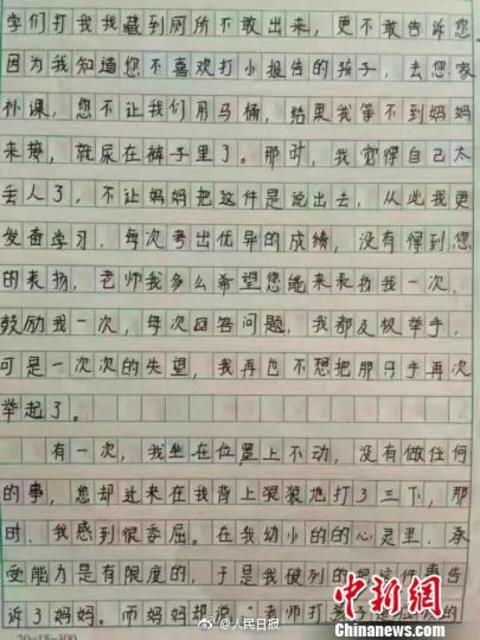 学们打我我藏到厕所不敢出来，更不敢告诉您
因为我知道您不喜欢打小报告的孩子，去您家
补课，您不让我们用马桶，结果我等不到妈妈
来接，就尿在裤子里了。那时，我觉得自己太
丢人了，不让妈妈把这件是说出去，从此我更
发奋学习，每次考出优异的成绩，没有得到您
的表扬，老师我多么希望您能来表扬我一次，
鼓励我一次，每次回答问题，我都及极举手，
可是一次次的失望，我再也不想把那只手再次
举起了。
有一次，我坐在位置上不动，没有做任何
的事，您却过来在我背上狠狠地打了三下，那
时，我感到很委屈。在我幼小的的心灵里，承
受能力是有限度的，于是我破列的把这件事告
诉了妈妈。而妈妈却说“老师打孩子是
中新网
www.chinanews.com
@人民日报
20×15=300